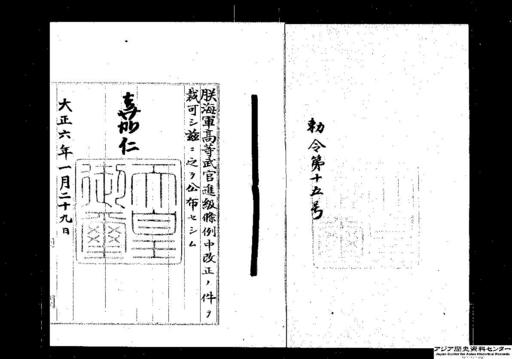 勅令第十五号
朕海軍高等武官進級條例中改正ノ件ヲ
裁可シ茲ニ之ヲ公布セシム
嘉仁
天皇
御璽
大正六年一月二十九日
アジア歴史資料センター
Japan Center for Asian Historical Records